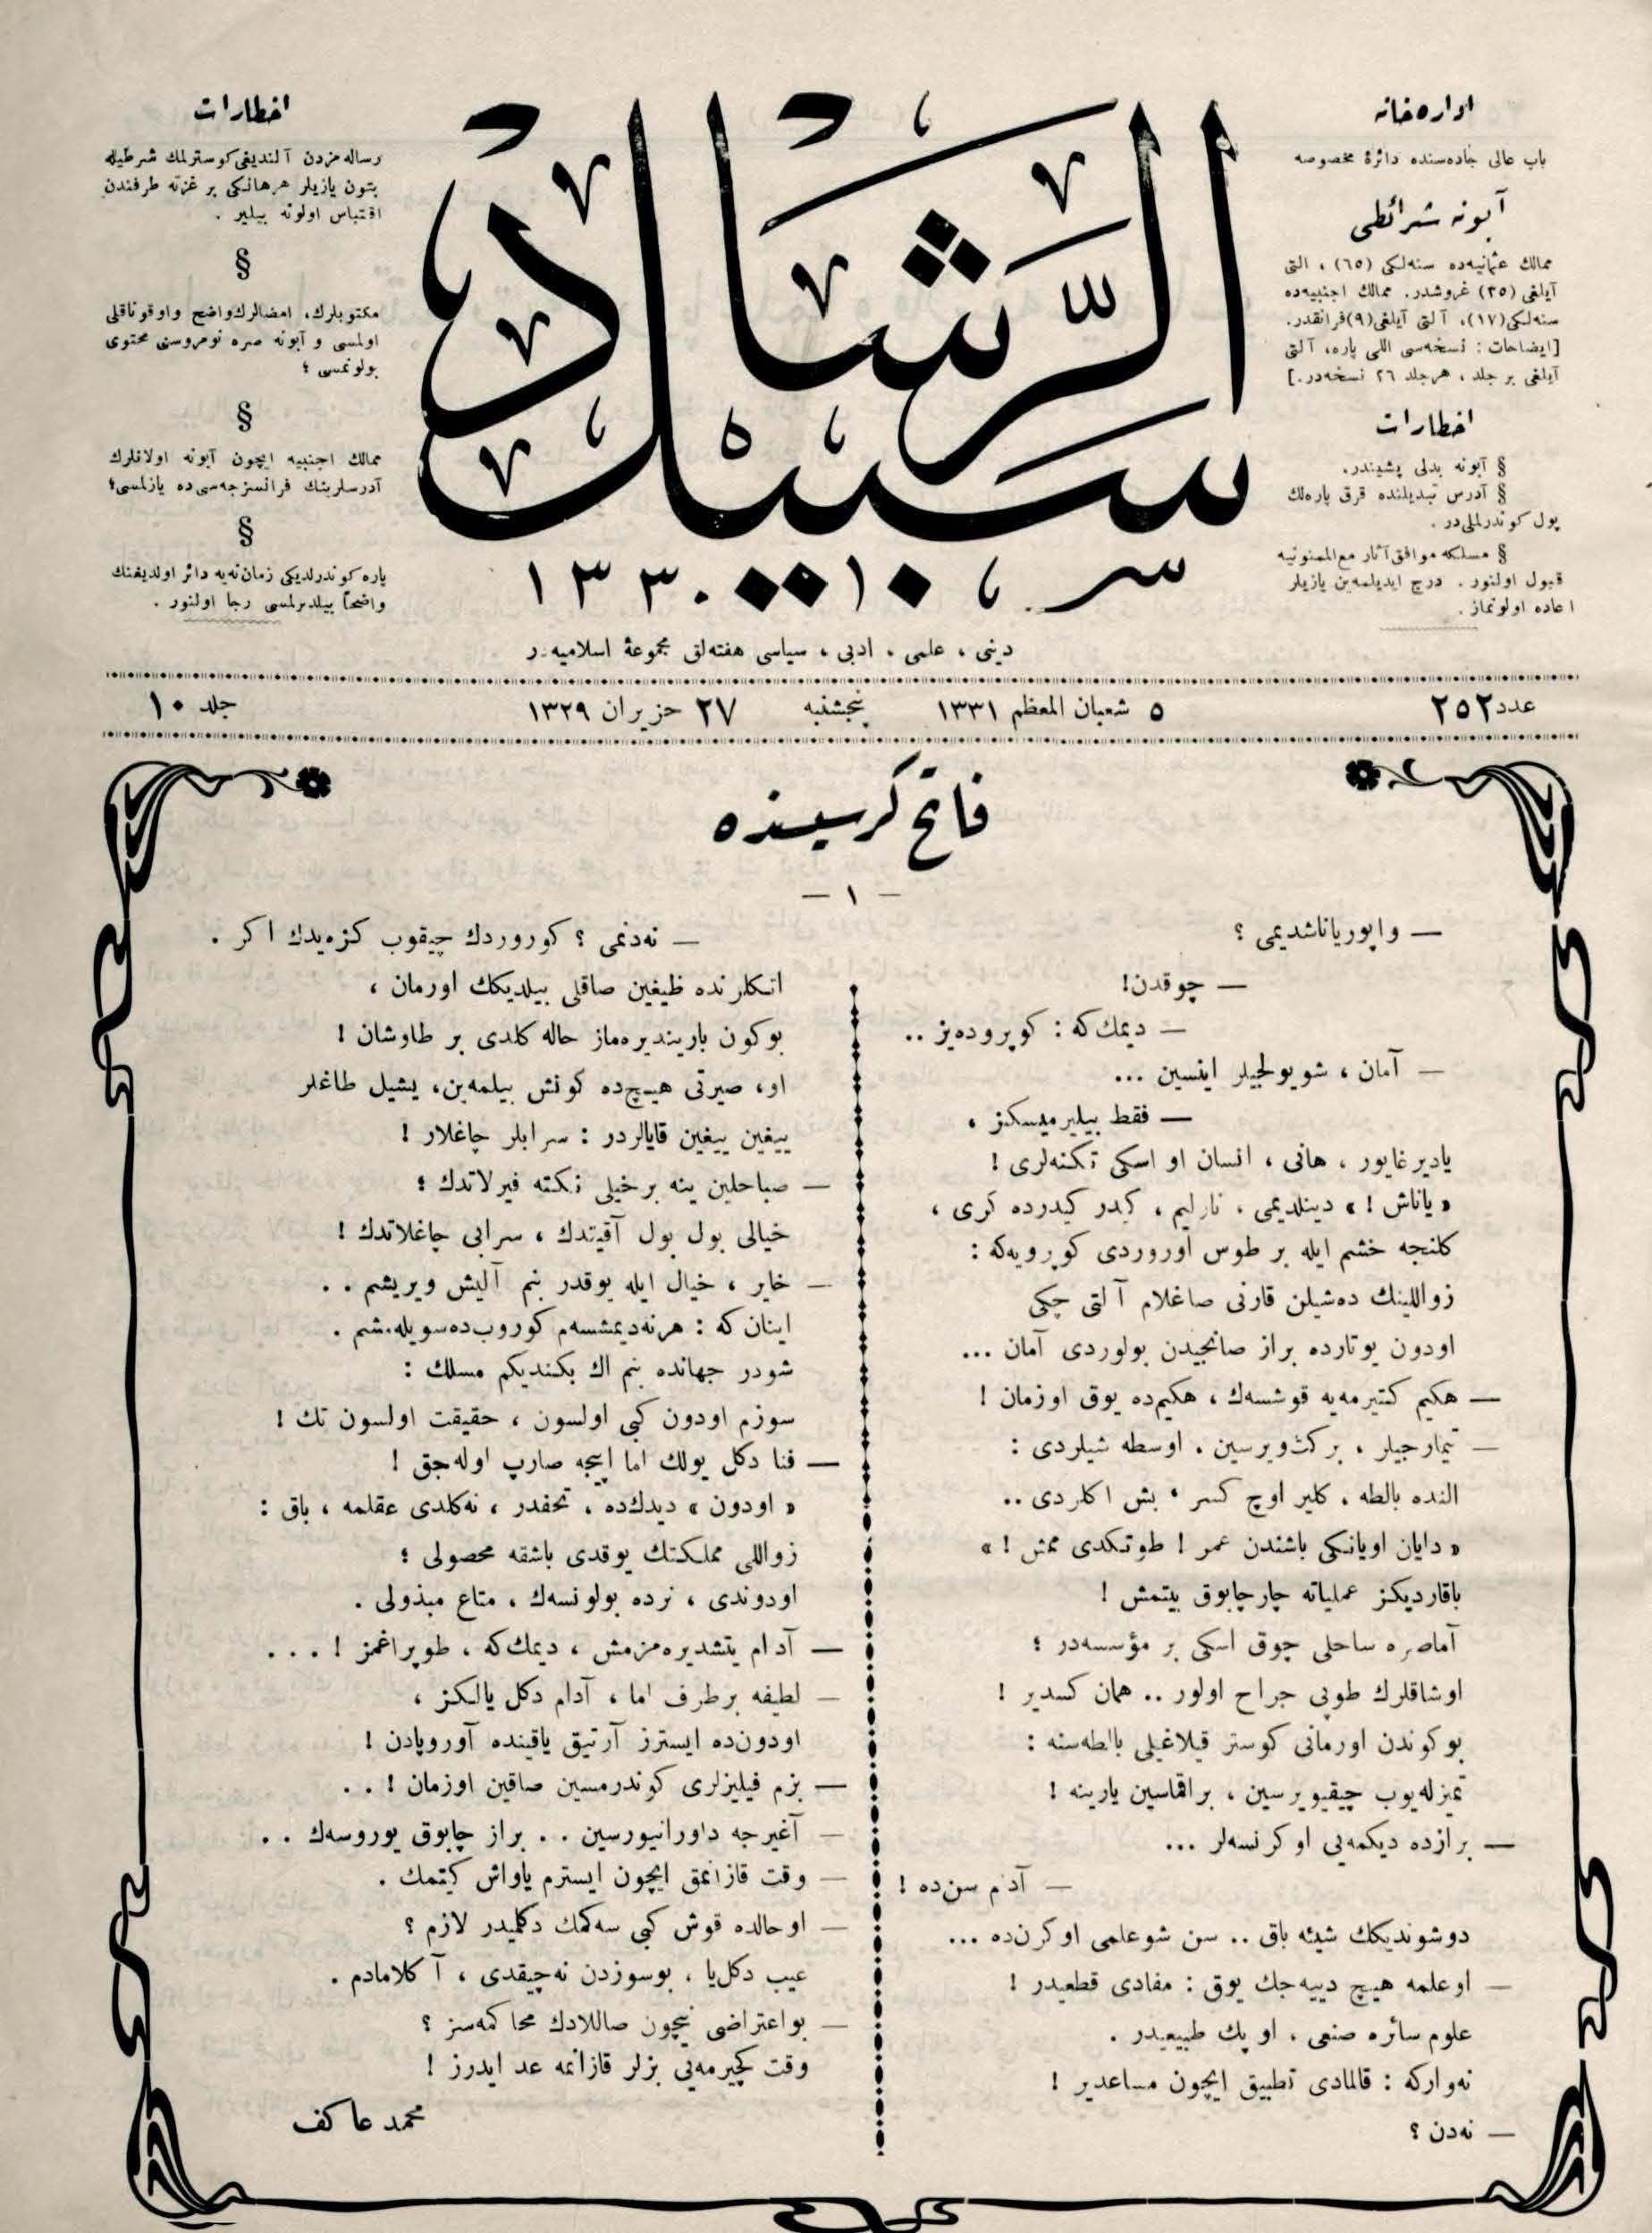 اداره‌خانه
باب عالی جاده‌سنده دائرهٔ مخصوصه
آبونه شرائطی
ممالك عثمانیه‌ده سنه‌لكی (٦٥) ، التی
آیلغی (٣٥) غروشدر. ممالك اجنبیه‌ده
سنه‌لكی (١٧)، آلتی آیلغی (٩) فرانقدر.
[ایضاحات : نسخه‌سی اللی پاره، آلتی
آیلغی بر جلد ، هر جلد ٢٦ نسخه‌در.]
اخطارات
§ آبونه بدلی پشیندر.
§ آدرس تبدیلنده قرق پاره‌لك
پول كوندرلملی‌در .
§ مسلكه موافق آثار مع‌الممنونیه
قبول اولنور . درج ایدیلمه‌ین یازیلر
اعاده اولونماز .
سبیل الرّشاد
١٣٣٠
اخطارات
رساله‌مزدن آلندیغی كوسترلمك شرطیله
بتون یازیلر هرهانكی بر غزته طرفندن
اقتباس اولونه بیلیر .
§
مكتوبلرك، امضالرك واضح و اوقوناقلی
اولمسی و آبونه صره نومروسنی محتوی
بولونمسی ؛
§
ممالك اجنبیه ایچون آبونه اولانلرك
آدرسلرینك فرانسزجه‌سی‌ده یازلمسی؛
§
پاره كوندرلدیكی زمان نه‌یه دائر اولدیغنك
واضحاً بیلدیرلمسی رجا اولنور .
دینی ، علمی ، ادبی ، سیاسی هفته‌لق مجموعهٔ اسلامیه‌در
عدد ٢٥٢
٥ شعبان المعظم ١٣٣١
پنجشنبه
٢٧ حزیران ١٣٢٩
جلد ١٠
فاتح كرسیسنده
— ١ —
— واپور یاناشدیمی ؟
— چوقدن!
— دیمك كه : كوپروده‌یز ..
— آمان ، شو یولجیلر اینسین ...
— فقط بیلیرمیسكز ،
یادیرغایور ، هانی ، انسان او اسكی تكنه‌لری !
« یاناش ! » دینلدیمی ، نازلیم ، كیدر كیدرده كری ،
كلنجه خشم ایله بر طوس اوروردی كوپرویه‌كه :
زواللینك ده‌شیلن قارنی صاغلام آلتی چكی
اودون یوتارده براز صانجیدن بولوردی آمان ...
— هكیم كتیرمه‌یه قوشسه‌ك ، هكیم‌ده یوق اوزمان !
— تیمارجیلر ، بركت‌ویرسین ، اوسطه شیلردی :
النده بالطه ، كلیر اوچ كسر ، بش اكلردی ..
« دایان اویانكی باشندن عمر ! طوتكدی ممش ! »
باقاردیكز عملیاته چارچابوق بیتمش !
آماصره ساحلی چوق اسكی بر مؤسسه‌در ؛
اوشاقلرك طوپی جراح اولور .. همان كسدیر !
بوكوندن اورمانی كوستر قیلاغیلی بالطه‌سنه :
تمیزله‌یوب چیقیویرسین ، براقماسین یارینه !
— برازده دیكمه‌یی اوكرنسه‌لر ...
— آدم سن‌ده !
دوشوندیكك شیئه باق .. سن شو علمی اوكرن‌ده ...
— او علمه هیچ دییه‌جك یوق : مفادی قطعیدر !
علوم سائره صنعی ، او پك طبیعیدر .
نه‌واركه : قالمادی تطبیق ایچون مساعدیر !
— نه‌دن ؟
— نه‌دنمی ؟ كوروردك چیقوب كزه‌یدك اكر .
اتكلرنده ظیغین صاقلی بیلدیكك اورمان ،
بوكون باریندیره‌ماز حاله كلدی بر طاوشان !
او، صیرتی هیچ‌ده كونش بیلمه‌ین، یشیل طاغلر
ییغین ییغین قایالردر : سرابلر چاغلار !
— صباحلین ینه برخیلی نكته فیرلاتدك ؛
خیالی بول بول آقیتدك ، سرابی چاغلاتدك !
— خایر ، خیال ایله یوقدر بنم آلیش ویریشم . .
اینان كه : هرنه‌دیمشسه‌م كوروب‌ده‌سویله‌مشم .
شودر جهانده بنم اك بكندیكم مسلك :
سوزم اودون كبی اولسون ، حقیقت اولسون تك !
— فنا دكل یولك اما اییجه صارپ اوله‌جق !
« اودون » دیدك‌ده ، تحفدر ، نه‌كلدی عقلمه ، باق :
زواللی مملكتك یوقدی باشقه محصولی ؛
اودوندی ، نرده بولونسه‌ك ، متاع مبذولی .
— آدام یتشدیره‌مزمش ، دیمك‌كه ، طوپراغمز ! . . .
— لطیفه برطرف اما ، آدام دكل یالكز ،
اودون‌ده ایسترز آرتیق یاقینده آوروپادن !
— بزم فیلیزلری كوندرمسین صاقین اوزمان ! . .
— آغیرجه داورانیورسین . . براز چابوق یوروسه‌ك . .
— وقت قازانمق ایچون ایسترم یاواش كیتمك .
— اوحالده قوش كبی سه‌كمك دكلمیدر لازم ؟
عیب دكل‌یا ، بوسوزدن نه‌چیقدی ، آكلامادم .
— بو اعتراضی نیچون صاللادك محاكمه‌سز ؟
وقت كچیرمه‌یی بزلر قازانمه عد ایدرز !
محمد عاكف